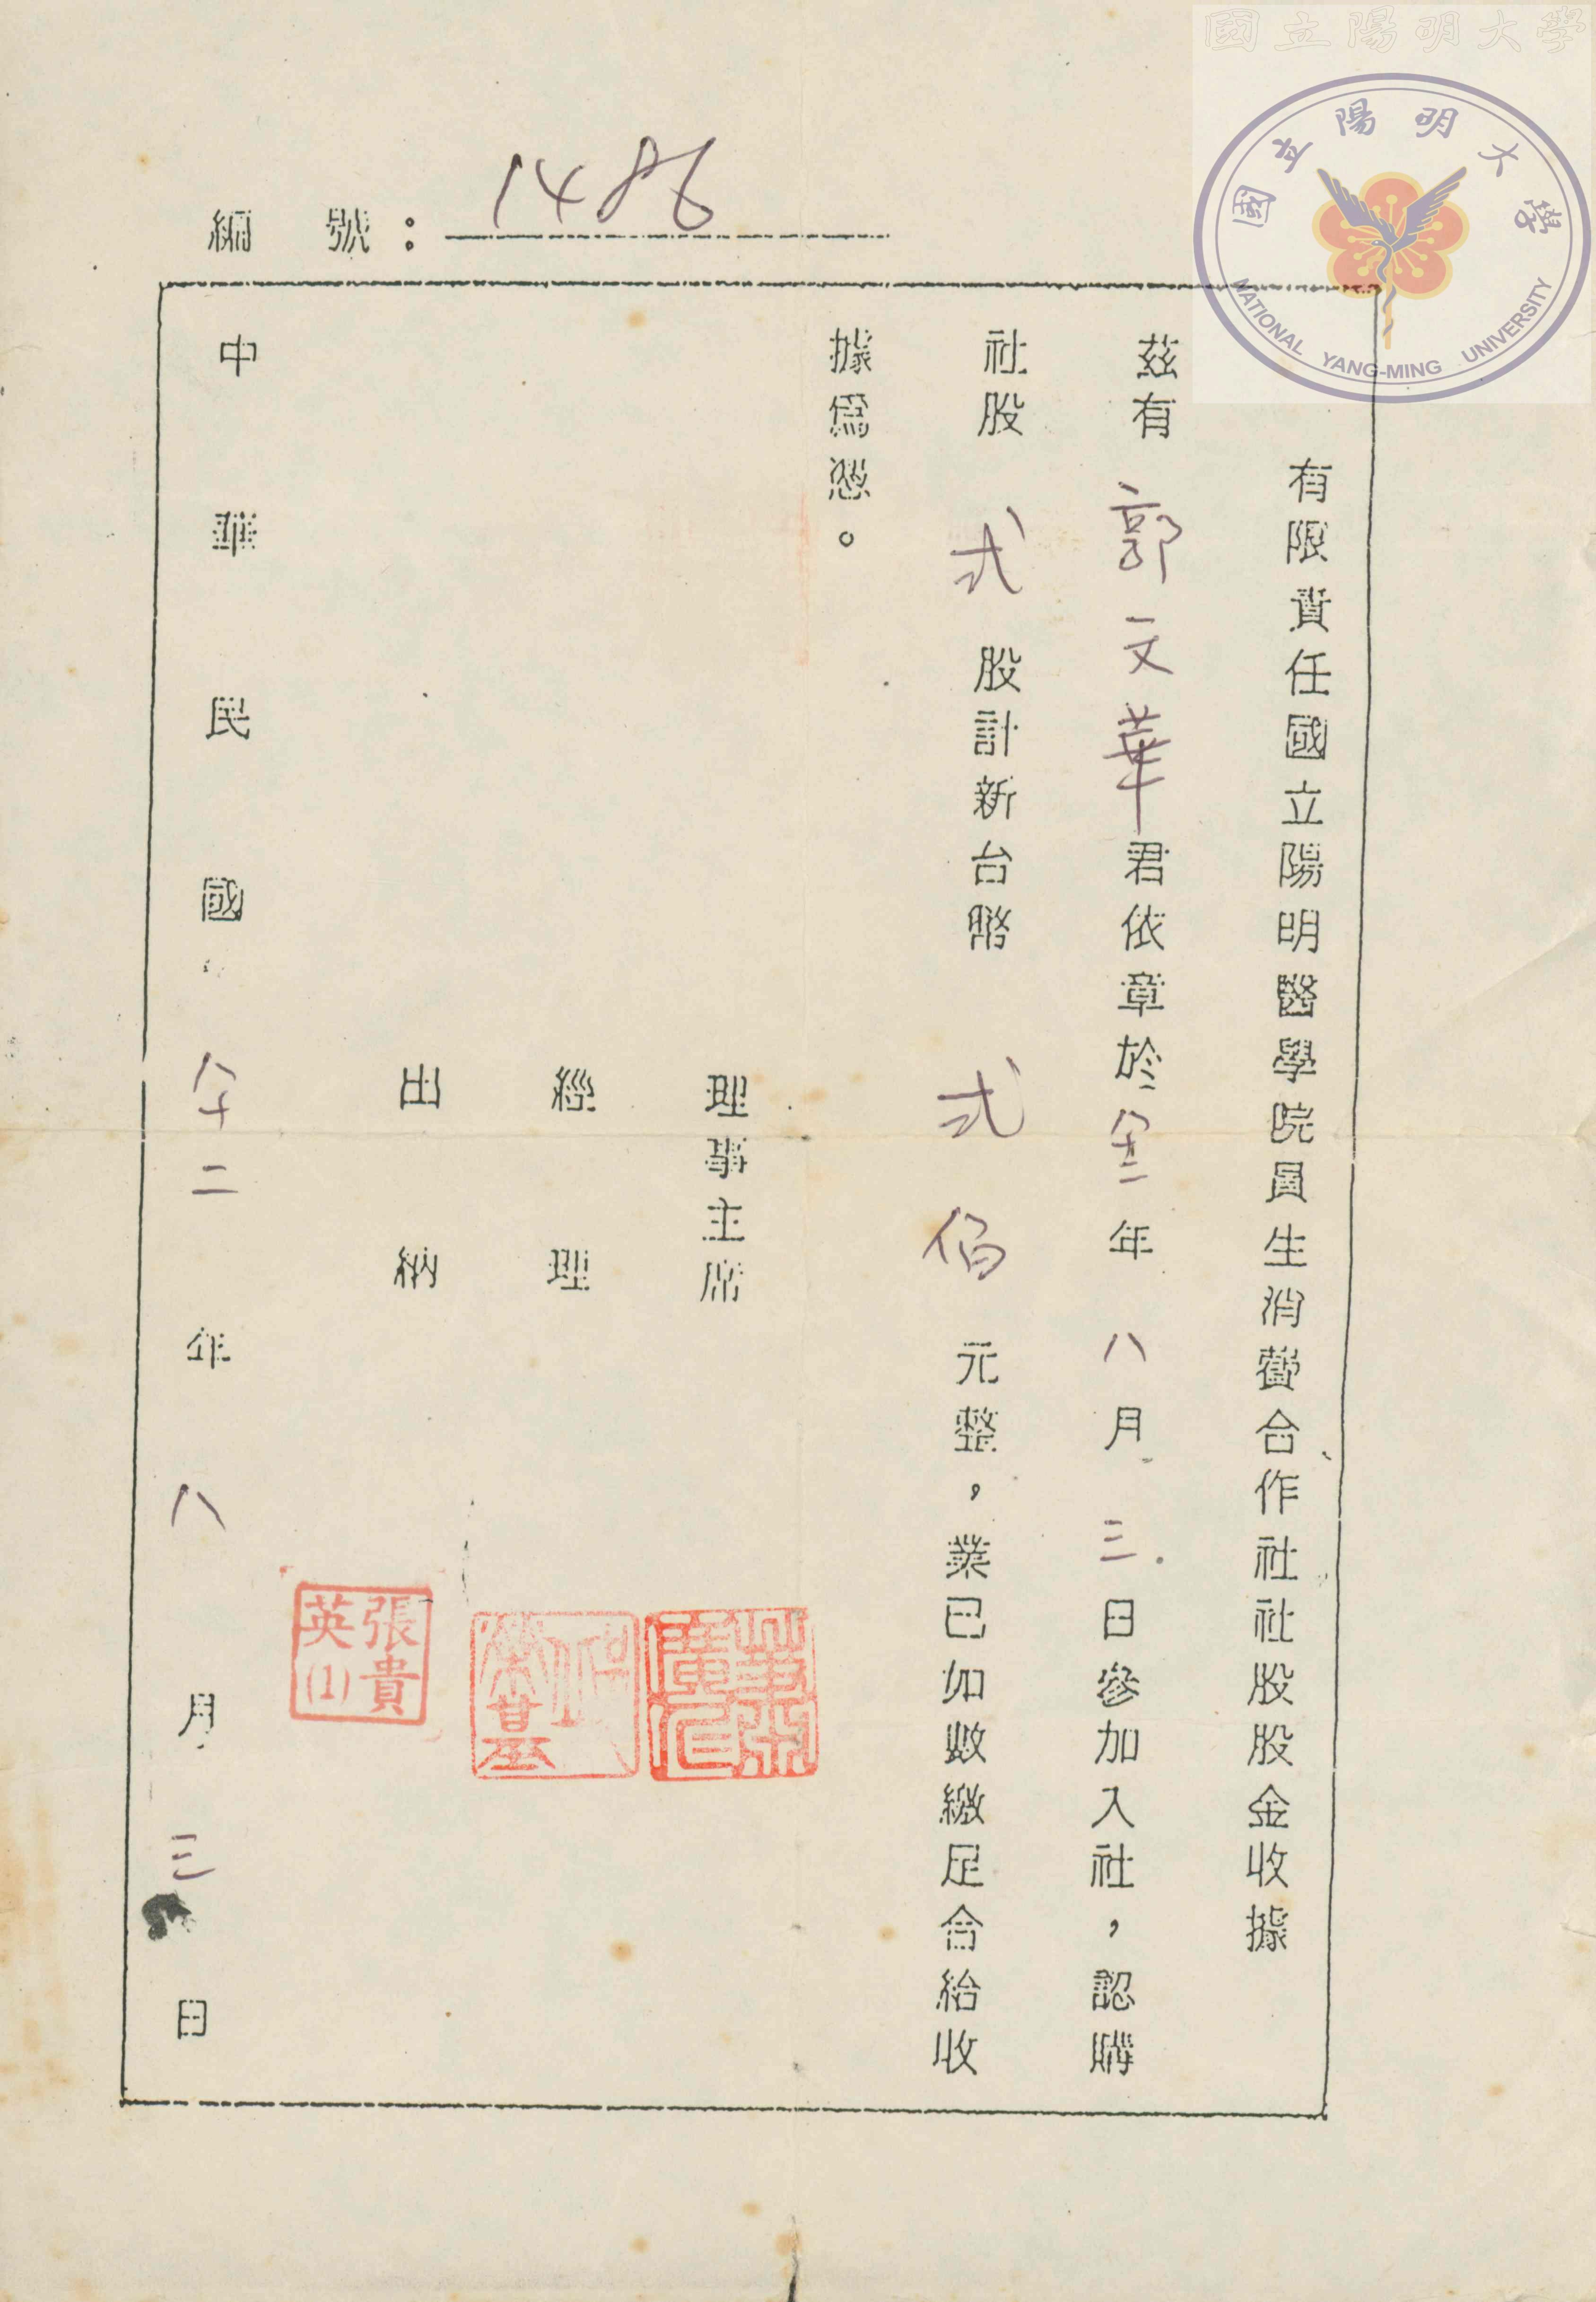 國立陽明大學
國立陽明大學
NATIONAL YANG-MING UNIVERSITY
編號：1486
有限責任國立陽明醫學院員生消費合作社社股股金收據
茲有郭文華君依章於八十二年八月三日參加入社，認購
社股弍股計新台幣弍佰元整，業已如數繳足合給收
據為憑。
理事主席
經理
出納
張貴英(1)
中華民國八十二年八月三日